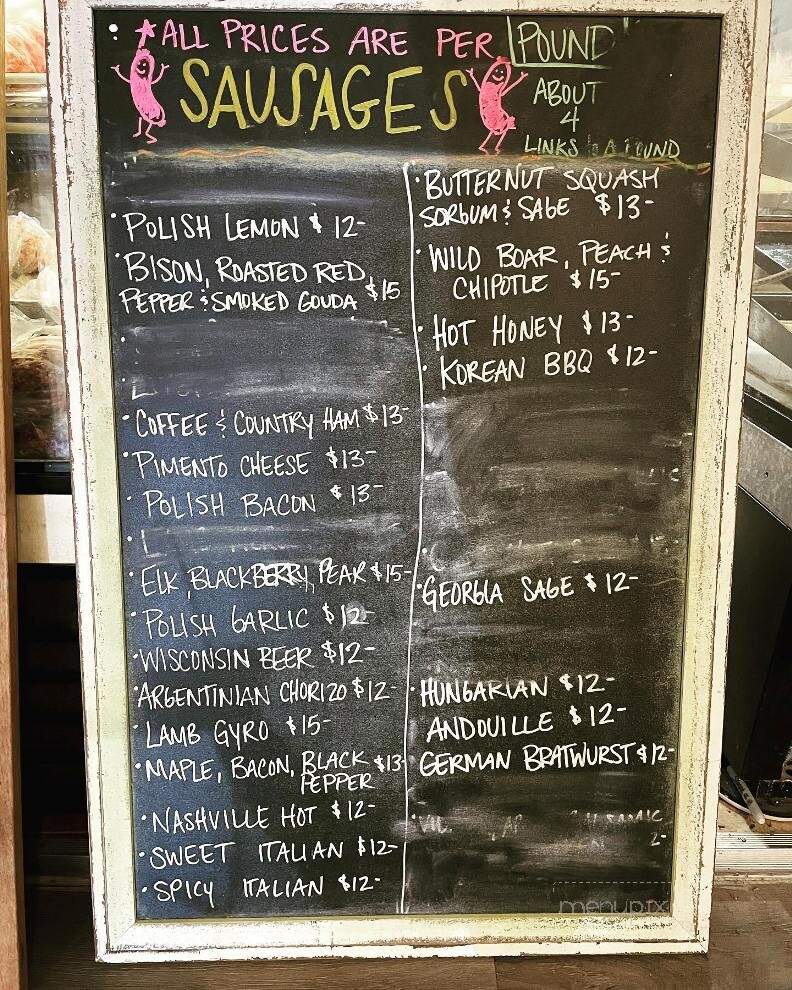 ALL PRICES ARE PER POUND
SAUSAGES
ABOUT
4
LINKS
• POLISH LEMON $12-
• BISON, ROASTED RED
PEPPER & SMOKED GOUDA $15
• COFFEE & COUNTRY HAM $13-
• PIMENTO CHEESE $13-
• POLISH BACON $13-
• ELK, BLACKBERRY, PEAR $15-
• POLISH GARLIC $12-
• WISCONSIN BEER $12-
• ARGENTINIAN CHORIZO $12-
• LAMB GYRO $15-
• MAPLE, BACON, BLACK $13
PEPPER
• NASHVILLE HOT $12-
• SWEET ITALIAN $12-
• SPICY ITALIAN $12-
• BUTTERNUT SQUASH
SORGUM & SAGE $13-
• WILD BOAR, PEACH &
CHIPOTLE $15-
• HOT HONEY $13-
• KOREAN BBQ $12-
• GEORGIA SAGE $12-
• HUNGARIAN $12-
ANDOUILLE $12-
• GERMAN BRATWURST $12-
menupix